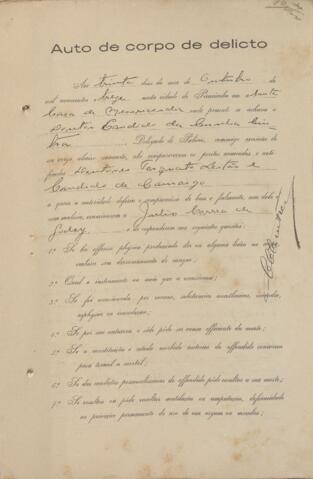 Auto de corpo de delicto
Aos trinta dias do mez de Outubro de
mil novecentos e treze nesta cidade de Piracicaba em Santa
Casa de Misericordia onde presente se achava o
Doutor Candido da Cunha Cintra
Delegado de Policia, commigo escrivão de
seu cargo abaixo nomeado, ahi compareceram os peritos nomeados e noti-
ficados Doutores Torquato Leitão e
Candido de Camargo
a quem a autoridade deferiu o compromisso de bem e fielmente, sem dolo e
sem malicia, examinarem a Julio Correa de
Godoy e de responderem aos seguintes quesitos:
1.º Se ha offensa physica produzindo dôr ou alguma lesão no corpo,
embora sem derramamento de sangue;
2.º Qual o instrumento ou meio que a occasionou;
3.º Se foi occasionada por veneno, substancias anesthesicas, incendio,
asphyxia ou inundação;
4.º Se por sua natureza e séde póde ser causa efficiente da morte;
5.º Se a constituição e estado morbido anterior do offendido concorrem
para tornal-a mortal;
6.º Se das condições personalissimas do offendido póde resultar a sua morte;
7.º Se resultou ou póde resultar mutilação ou amputação, deformidade
ou privação permanente do uso de um orgam ou membro;